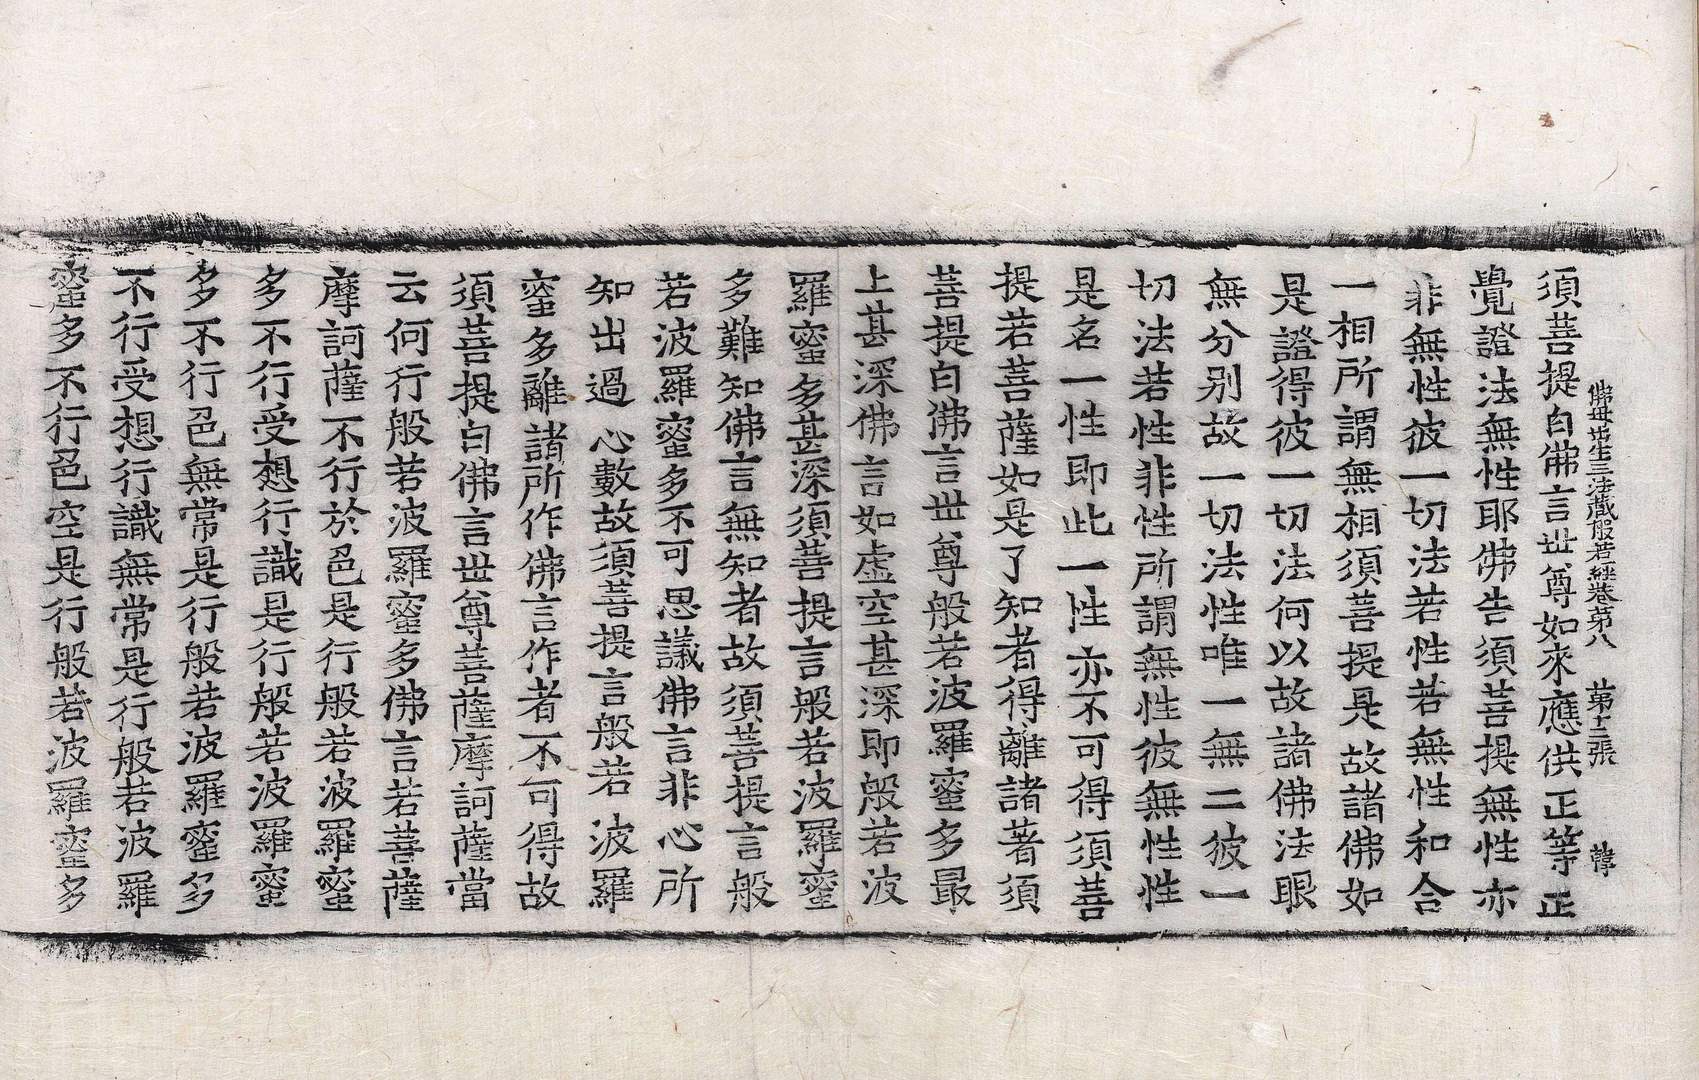 佛母出生三法藏般若經卷第八 第十二張 韓
須菩提白佛言世尊如來應供正等正
覺證法無性耶佛告須菩提無性亦
非無性彼一切法若性若無性和合
一相所謂無相須菩提是故諸佛如
是證得彼一切法何以故諸佛法眼
無分别故一切法性唯一無二彼一
切法若性非性所謂無性彼無性性
是名一性即此一性亦不可得須菩
提若菩薩如是了知者得離諸著須
菩提白佛言世尊般若波羅蜜多最
上甚深佛言如虛空甚深即般若波
羅蜜多甚深須菩提言般若波羅蜜
多難知佛言無知者故須菩提言般
若波羅蜜多不可思議佛言非心所
知出過心數故須菩提言般若波羅
蜜多離諸所作佛言作者不可得故
須菩提白佛言世尊菩薩摩訶薩當
云何行般若波羅蜜多佛言若菩薩
摩訶薩不行於色是行般若波羅蜜
多不行受想行識是行般若波羅蜜
多不行色無常是行般若波羅蜜多
不行受想行識無常是行般若波羅
蜜多不行色空是行般若波羅蜜多